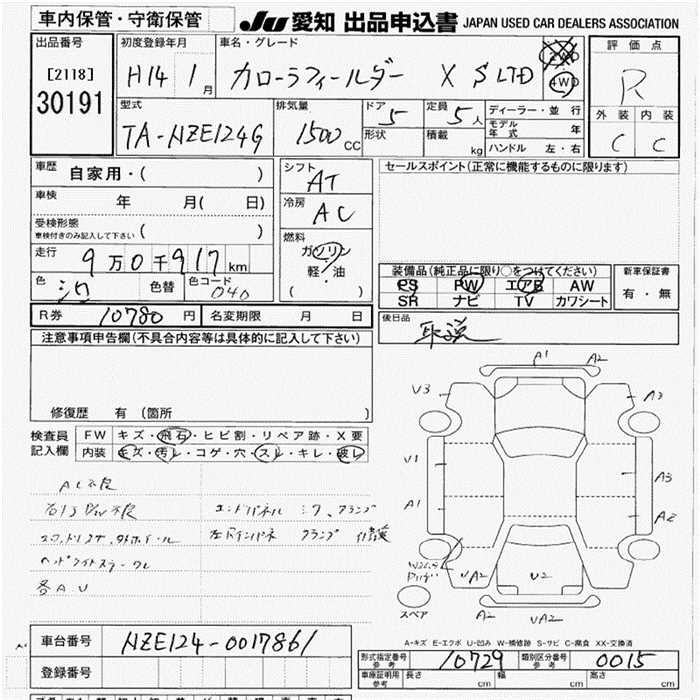 車内保管・守衛保管
JU 愛知 出品申込書 JAPAN USED CAR DEALERS ASSOCIATION
出品番号
[2118]
30191
初度登録年月
H14 1月
車名・グレード
カローラフィールダー X S LTD
2WD
4WD
評価点
R
外装 内装
C C
型式
TA-NZE124G
排気量
1500cc
ドア 5
形状
定員 5人
積載 kg
ディーラー・並行
モデル年式 年
ハンドル 左・右
車歴
自家用・( )
車検 年 月( 日)
受検形態
車検付きのみ記入して下さい ( )
走行
9万0千917km
色 シロ 色替 色コード 040
シフト
AT
冷房
AC
燃料
ガソリン
軽・油
( )
セールスポイント(正常に機能するものに限ります)
装備品(純正品に限り○をつけてください)
PS PW エアB AW
SR ナビ TV カワシート
新車保証書
有・無
R券 10780円 名変期限 月 日
後日品
取説
注意事項申告欄(不具合内容等は具体的に記入して下さい)
修復歴 有 (箇所 )
検査員記入欄
FW キズ・飛石・ヒビ割・リペア跡・X要
内装 キズ・汚レ・コゲ・穴・スレ・キレ・破レ
AC不良
エンドパネル
クランプ
ヘッドライト
各AU
A1 A2
V3 A3
V1 A3
A1 A2
VA2 U2
スペア A2 VA2
A-キズ E-エクボ U-凹み W-補修跡 S-サビ C-腐食 XX-交換済
車台番号 NZE124-0017861
登録番号
形式指定番号 参考 10729 類別区分番号 参考 0015
車庫証明用 参考 長さ cm 幅 cm 高さ cm